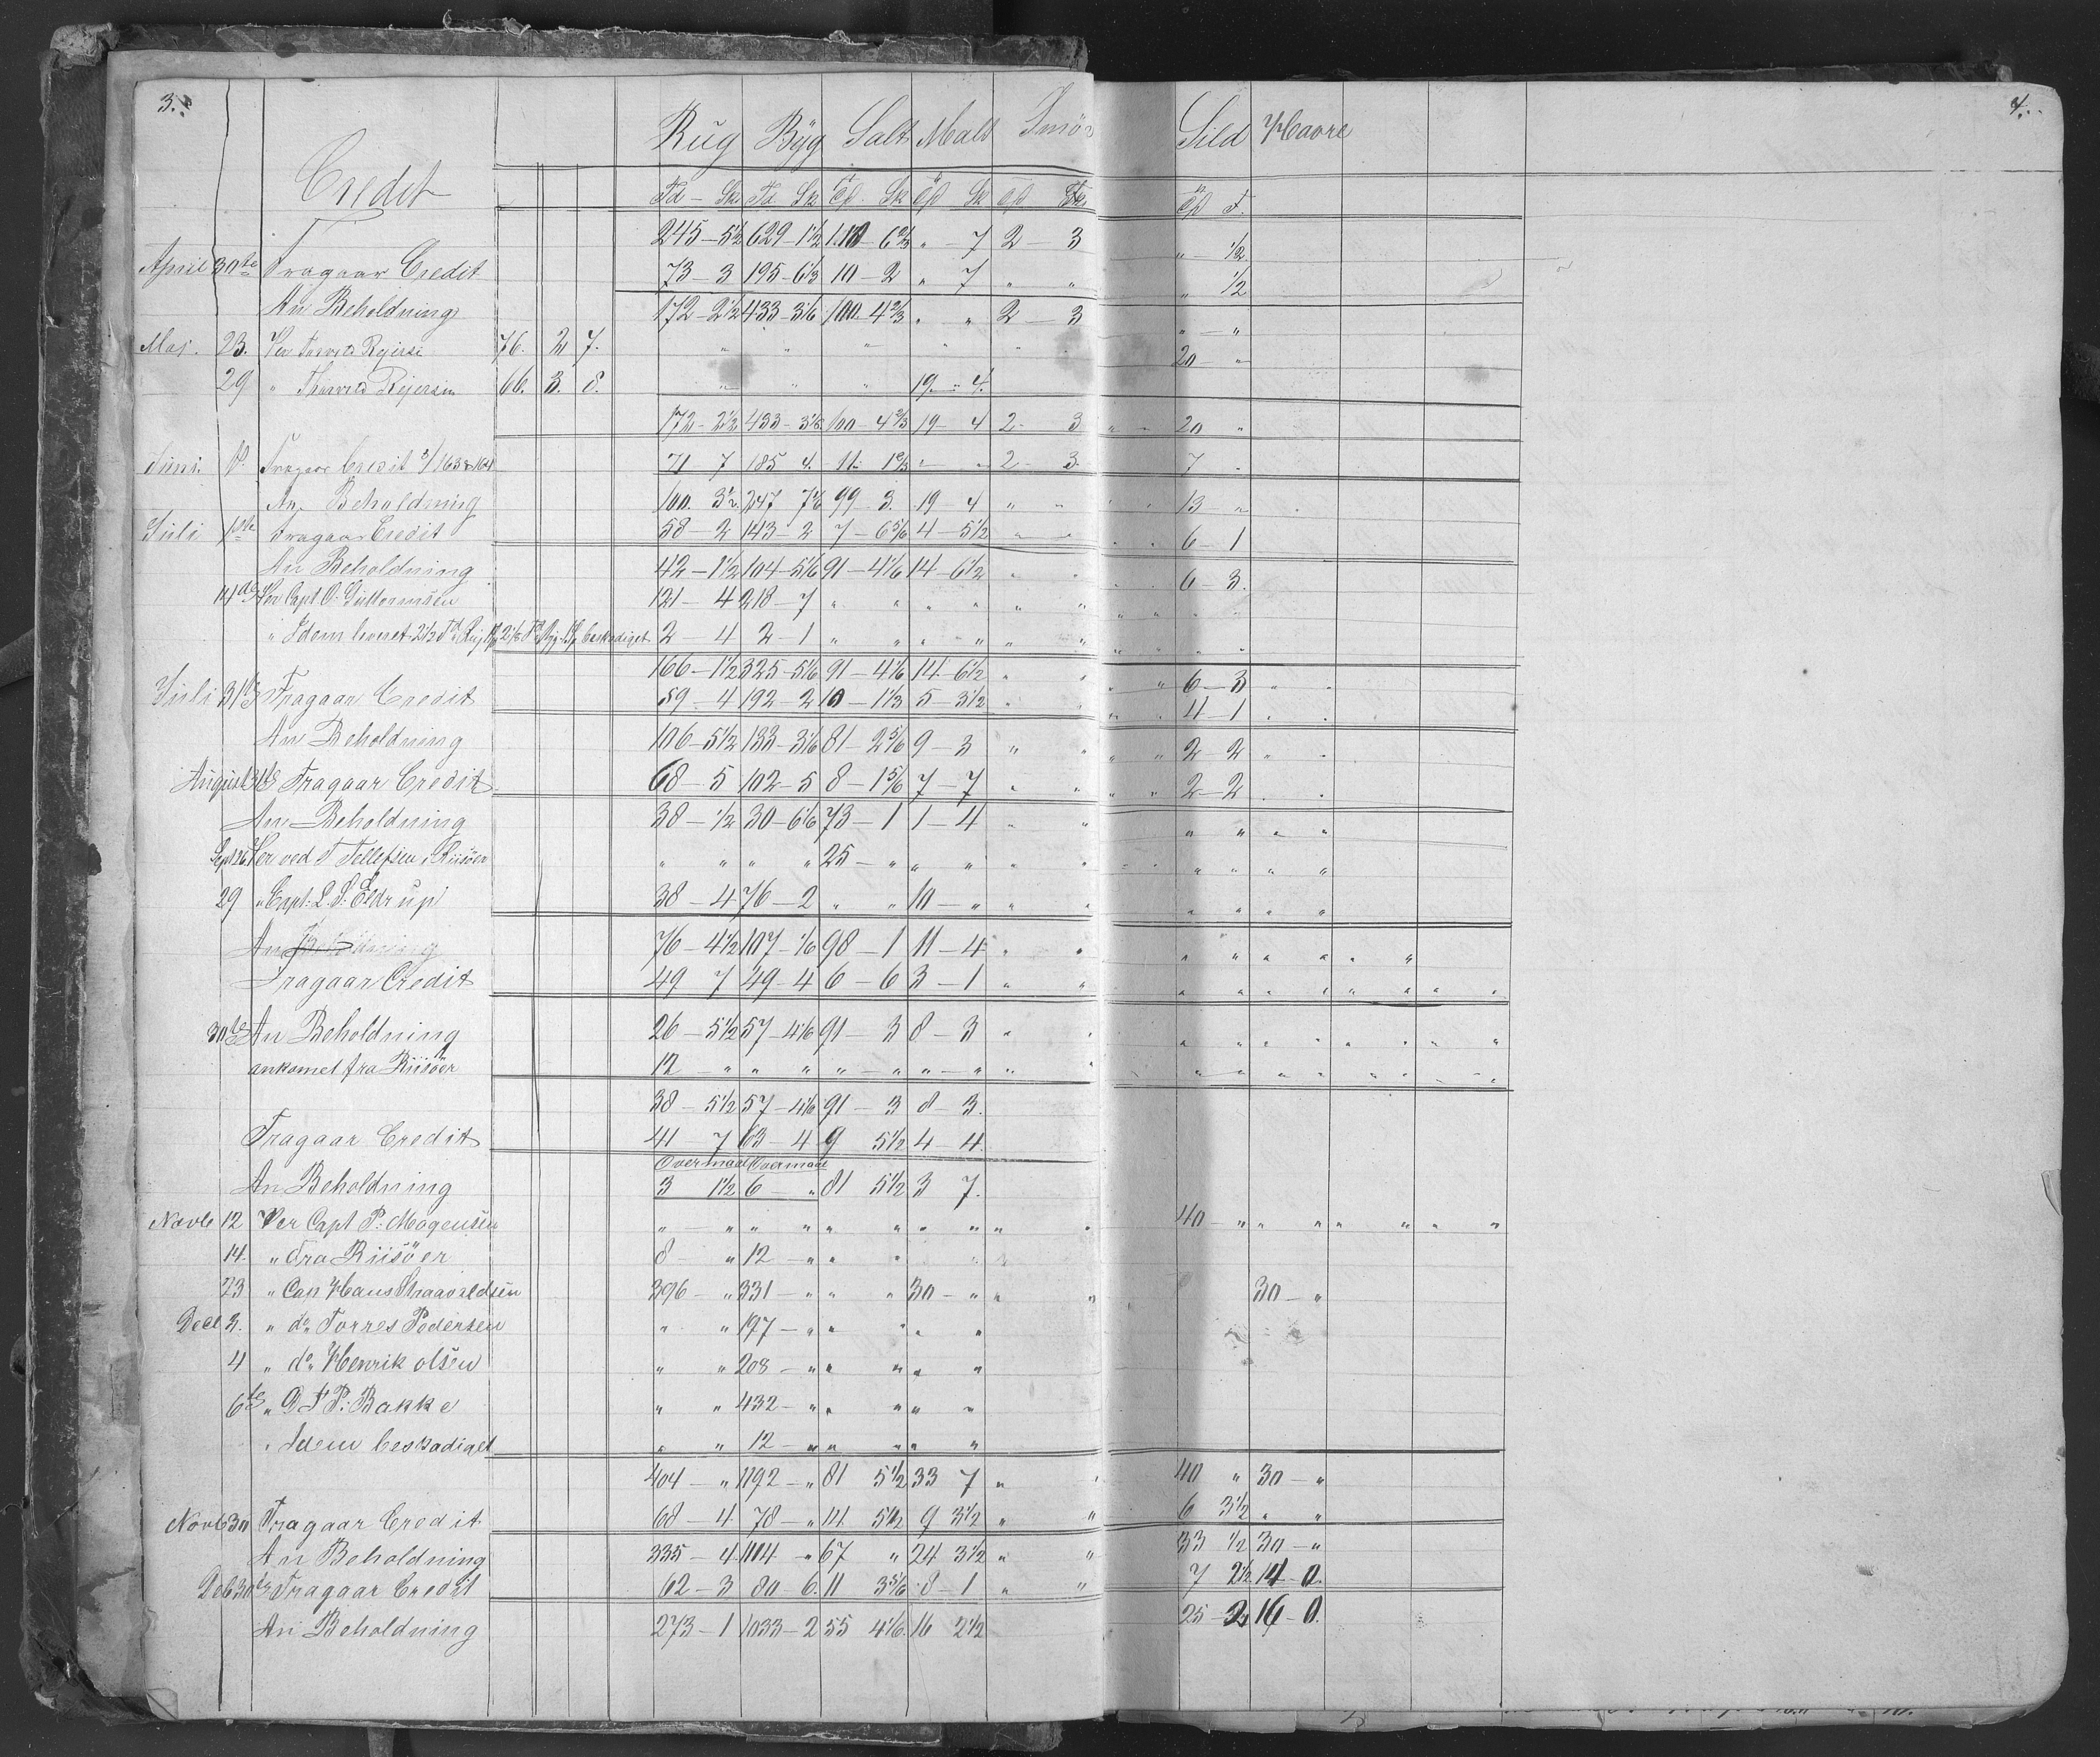 3. 4.
Rug Byg Salt Malt Smör Sild Havre
Credit
Td - Sk Td Sk Td Sk Td Sk Td Td F.
245 - 5 1/2 629 - 1 1/2 110 - 6 2/3 " - 7 2 - 3 " - 1/2
April 30te Fragaar Credit 73 - 3 195 - 6 1/3 10 - 2 " 7 " " " 1/2
An Beholdning 172 - 2 1/2 433 - 3 1/6 100 - 4 2/3 " " 2 - 3 " - "
Maj. 23. Per Thorvd Rejersi 76. 2 7. " " " " " 20 - "
29 " Thorvd Rejersen 66. 3. 8. " " " 19 - 4.
172 - 2 1/2 433 - 3 1/6 100 - 4 2/3 19 - 4 2 - 3 20 "
Juni. Fragaar Credit 163 & 164 71 - 7 185 4. 11 - 1 2/3 " " 2 - 3. 7 -
An Beholdning 100. 3 1/2 247 7 1/6 99 - 3. 19 4 " " 13 - "
Juli 1ste Fragaar Credit 58 - 2 143 - 2 7 - 6 5/6 4 - 5 1/2 " " 6 - 1
An Beholdning 42 - 1 1/2 104 - 5 1/6 91 - 4 1/6 14 - 6 1/2 " " 6 - 3.
14de Per Capt O. Guttormsen 121 - 4 218 - 7 " " " " " "
" Idem leveret 2 1/2 Td Rug 2 1/8 Td Byg beskadiget 2 - 4 2 - 1 " " " " " "
166 - 1 1/2 325 - 5 1/6 91 - 4 1/6 14 - 6 1/2 " " 6 - 3 " "
Juli 31te Fragaar Credit 59 - 4 192 - 2 10 - 1 1/3 5 - 3 1/2 " " 4 - 1 " "
An Beholdning 106 - 5 1/2 133 - 3 1/6 81 - 2 5/6 9 - 3 " " 2 - 2 " "
August 31te Fragaar Credit 68 - 5 102 - 5 8 - 1 5/6 7 - 7 " " 2 - 2 " "
An Beholdning 38 - 1/2 30 - 6 1/6 73 - 1 1 - 4 " " " " " "
Sept 26 Per ved T Tellefsen, Riisöer " " " " 25 - " " " " " " " " "
29 " Capt: L. S. Eldrup 38 - 4 76 - 2 " " 10 - " " " " " " "
An Beholdning 76 - 4 1/2 107 - 1/6 98 - 1 11 - 4 " " " " " " " "
Fragaar Credit 49 7 49 - 4 6 - 6 3 - 1 " " " " " " " "
30te An Beholdning 26 - 5 1/2 57 - 4 1/6 91 - 3 8 - 3 " " " " " " " "
ankomet fra Riisöer 12 - " " " " - " " - " " " " " " " " "
38 - 5 1/2 57 - 4 1/6 91 - 3 8 - 3.
Fragaar Credit 41 - 7 63 - 4 9 5 1/2 4 - 4.
Overmaal Overmaal
An Beholdning 3 1 1/2 6 - " 81 5 1/2 3 7.
Novb 12 Per Capt P: Mogensen " - " " " " " " " " " 40 - " " " " " "
14. " Fra Riisöer 8 - " 12 - " " " "
23 " Cap Hans Thaavaldsen 396 - " 331 - " " " 30 - " " " 30 - "
Decb 3. " do Torres Pedersen " " 197 - " " " " "
4 " do Henrik olsen " " 208 - " " " " "
6te " O. T P: Bakke " " 432 - " " " " "
" Idem beskadiget " " 12 - " " " " "
404 - " 1192 - " 81 5 1/2 33 7 " " 40 " 30 - "
Novb 30 Fragaar Credit 68 - 4 78 - " 14 5 1/2 9 3 1/2 " " 6 3 1/2 " "
An Beholdning 335 - 4 1114 - " 67 " 24 3 1/2 " " 33 1/2 30 - "
Deb 30te Fragaar Credit 62 - 3 80 - 6. 11 3 5/6 8 - 1 " " 7 2 1/2 14 - 0.
An Beholdning 273 - 1 1033 - 2 55 4 1/6. 16 2 1/2 25 - 2 16 - 0.